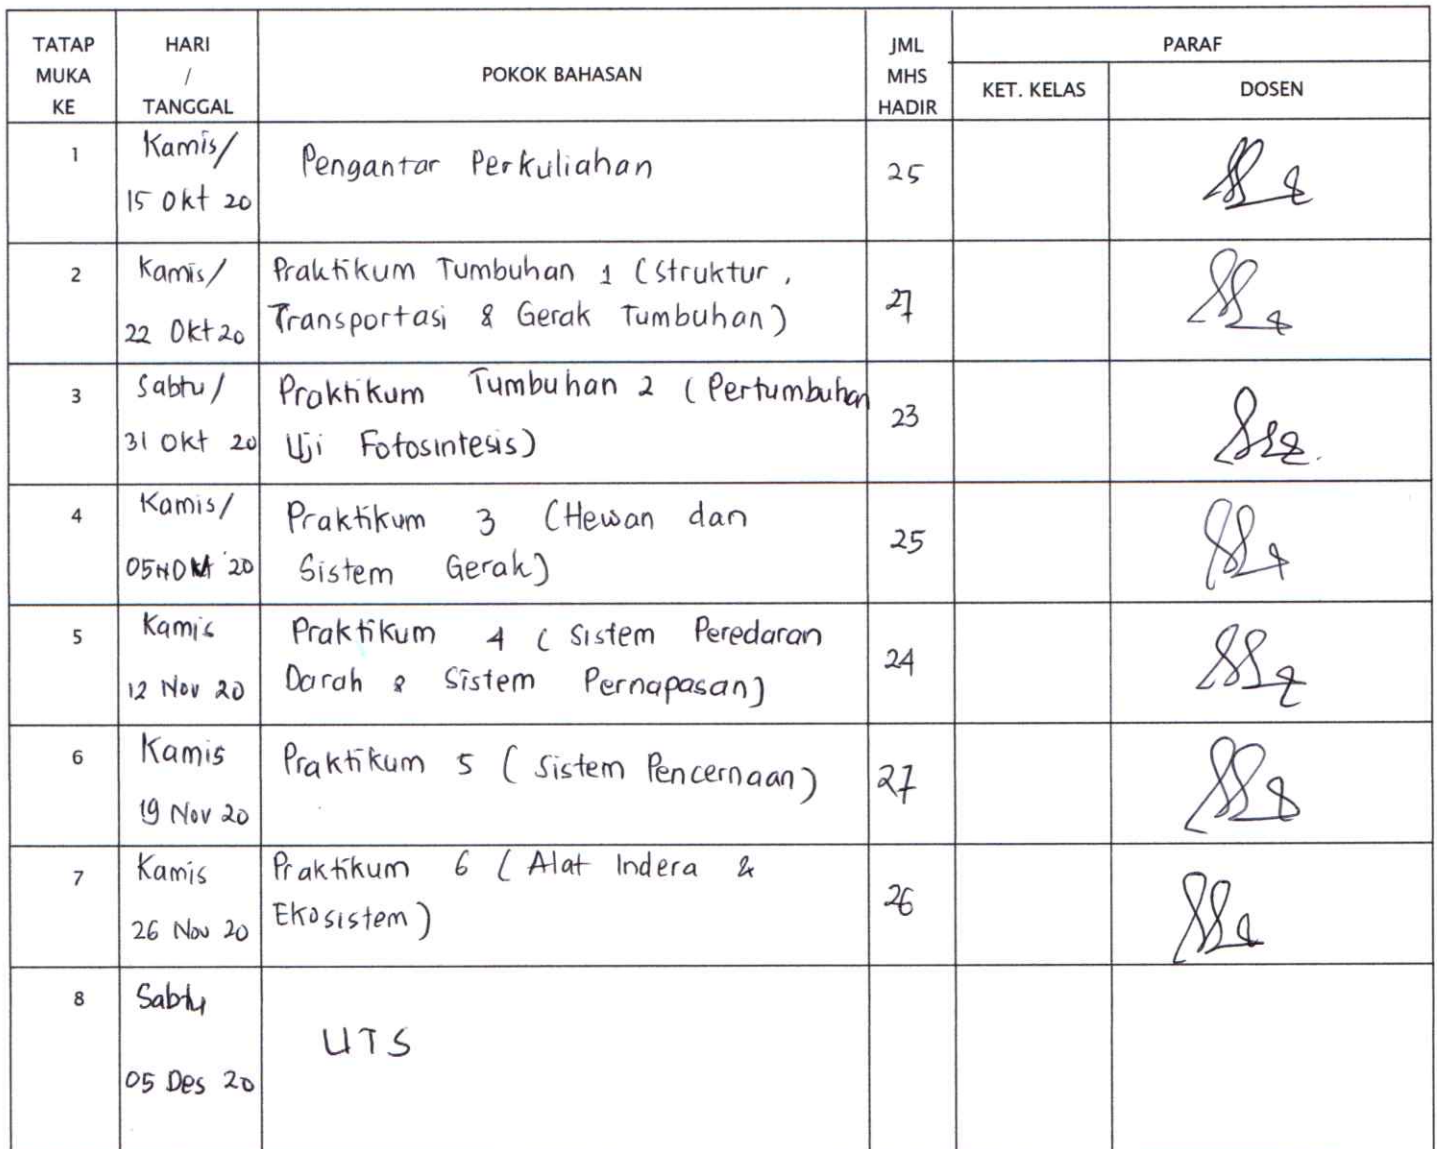 TATAP MUKA KE
HARI / TANGGAL
POKOK BAHASAN
JML MHS HADIR
PARAF
KET. KELAS
DOSEN
1
Kamis/
15 Okt 20
Pengantar Perkuliahan
25
2
Kamis/
22 Okt 20
Praktikum Tumbuhan 1 (Struktur,
Transportasi & Gerak Tumbuhan)
27
3
Sabtu/
31 Okt 20
Praktikum Tumbuhan 2 (Pertumbuhan
Uji Fotosintesis)
23
4
Kamis/
05 '20
Praktikum 3 (Hewan dan
Sistem Gerak)
25
5
Kamis
12 Nov 20
Praktikum 4 (Sistem Peredaran
Darah & Sistem Pernapasan)
24
6
Kamis
19 Nov 20
Praktikum 5 (Sistem Pencernaan)
27
7
Kamis
26 Nov 20
Praktikum 6 (Alat Indera &
Ekosistem)
26
8
Sabtu
05 Des 20
UTS